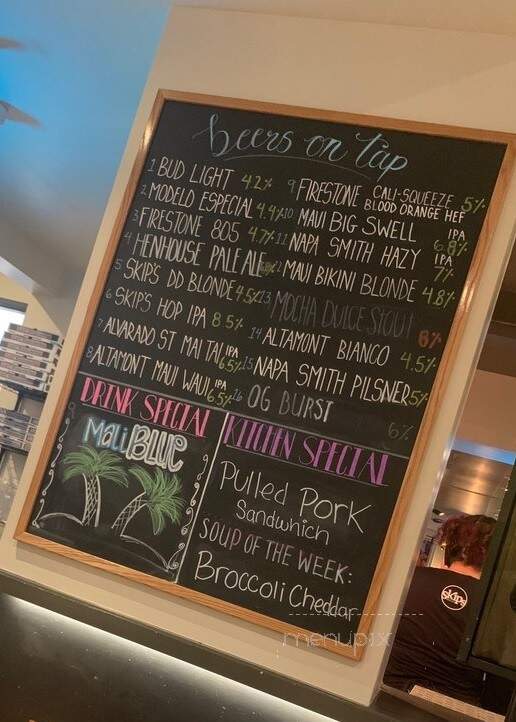 beers on tap
1 BUD LIGHT 4.2%
2 MODELO ESPECIAL 4.4%
3 FIRESTONE 805 4.7%
4 HENHOUSE PALE ALE
5 SKIP'S DD BLONDE 4.5%
6 SKIP'S HOP IPA 8.5%
7 ALVARADO ST MAI TAI IPA 6.5%
8 ALTAMONT MAUI WAUI IPA 6.5%
9 FIRESTONE CALI-SQUEEZE BLOOD ORANGE HEF 5%
10 MAUI BIG SWELL IPA 6.8%
11 NAPA SMITH HAZY IPA 7%
MAUI BIKINI BLONDE 4.8%
13 MOCHA DULCE STOUT 8%
14 ALTAMONT BIANCO 4.5%
15 NAPA SMITH PILSNER 5%
16 OG BURST 6%
DRINK SPECIAL
MALIBLUE
KITCHEN SPECIAL
Pulled Pork
Sandwhich
SOUP OF THE WEEK:
Broccoli Cheddar
menupix
skips